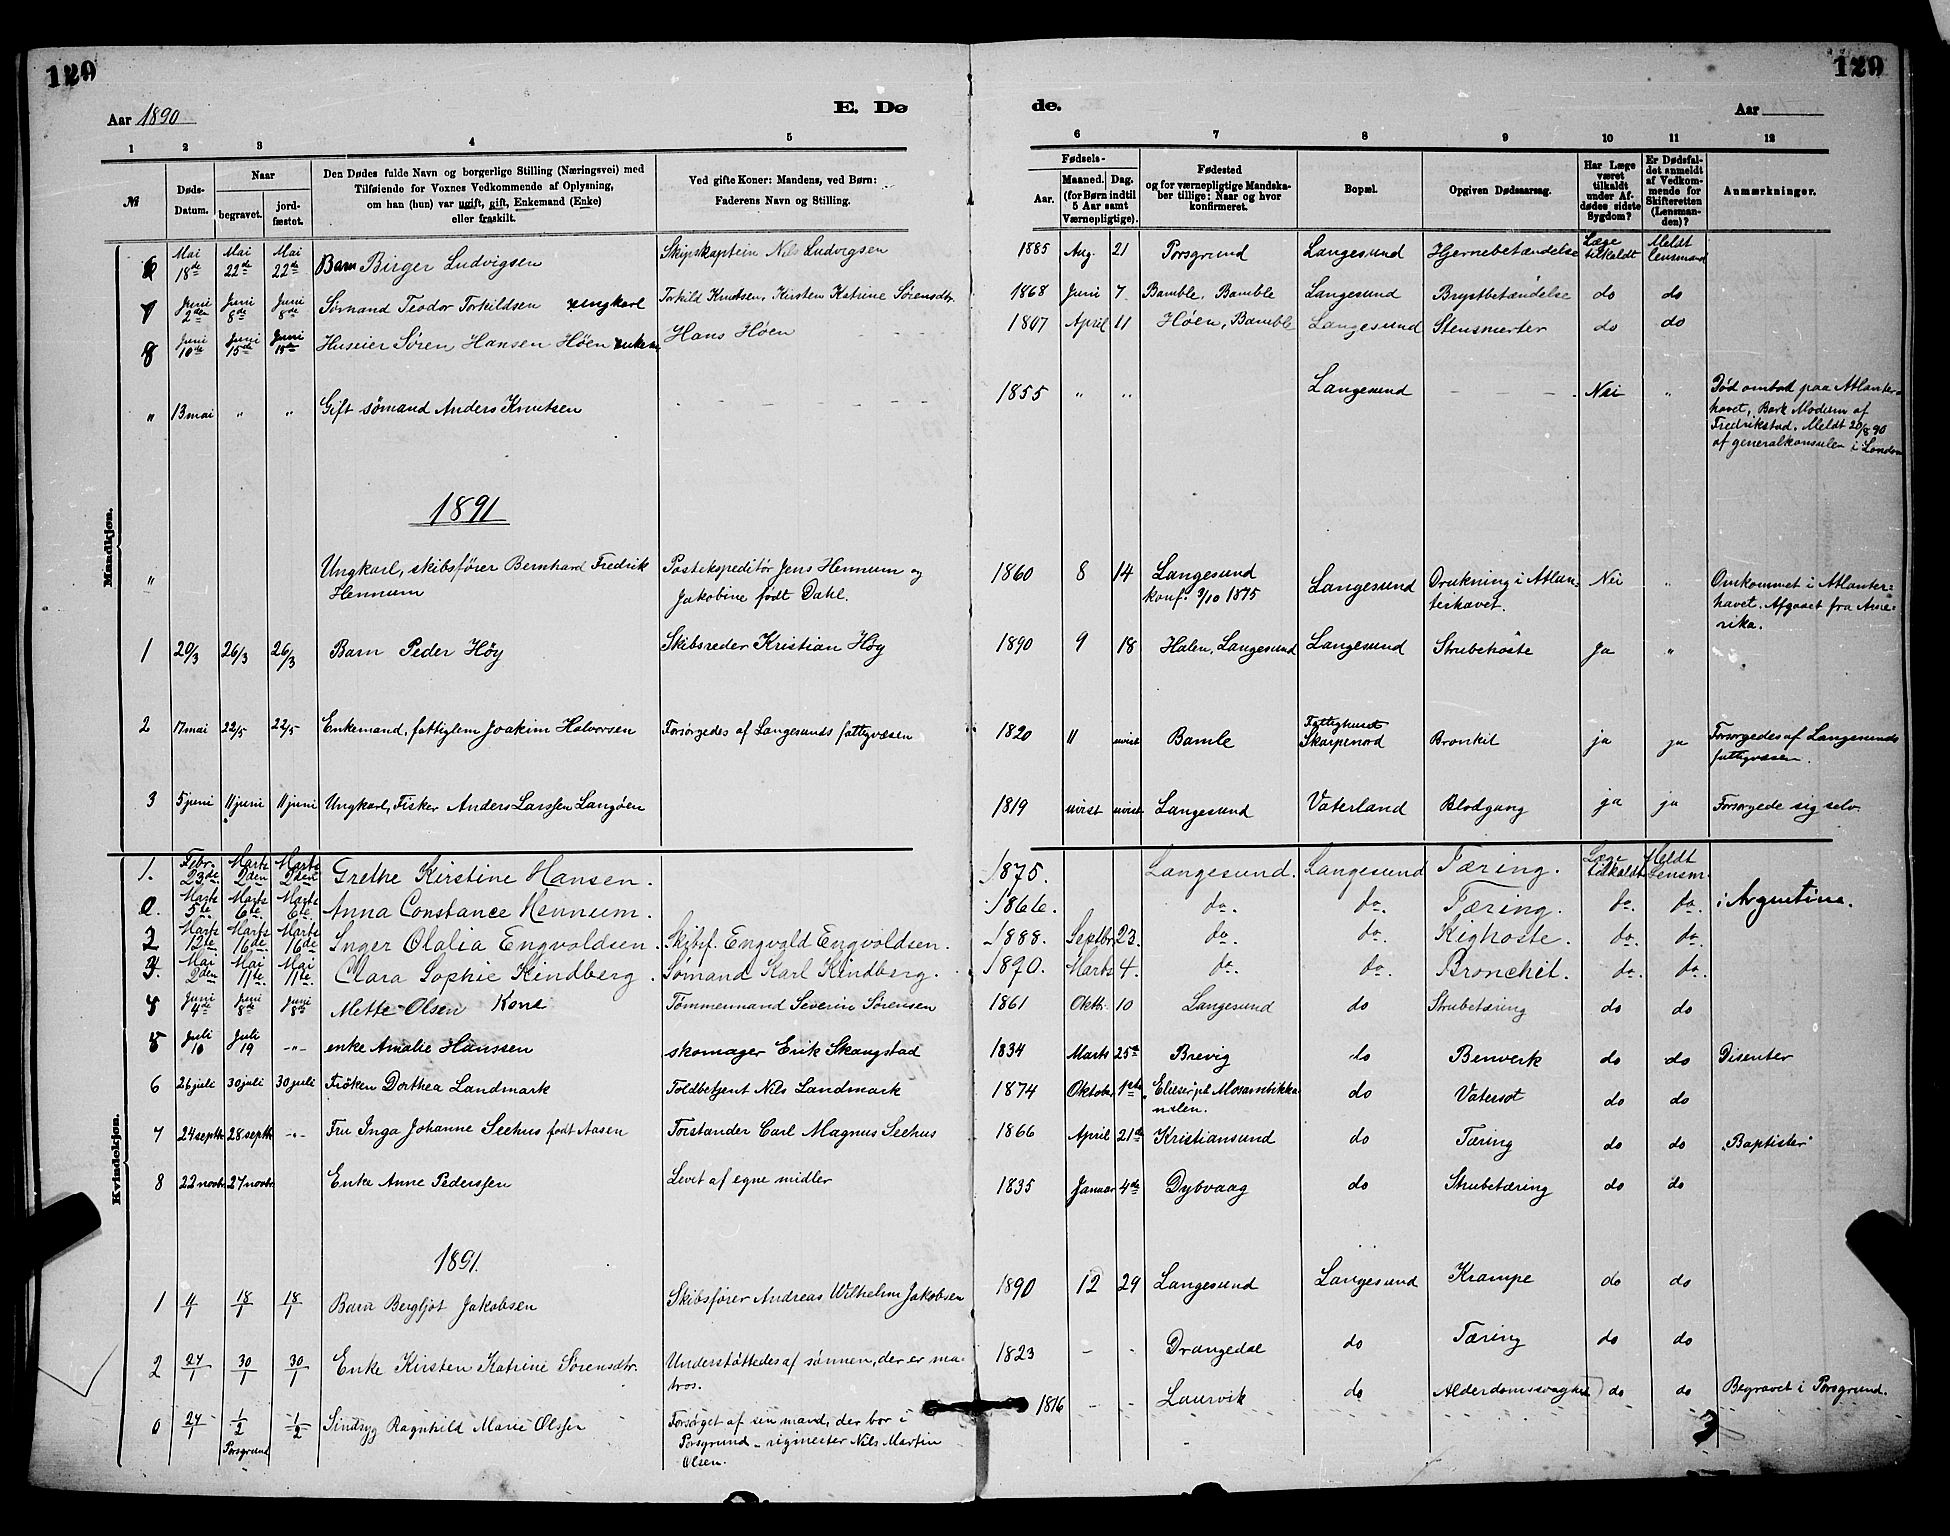 120
120
Aar 1890
E. Dø
de.
Aar
1 2 3 4 5 6 7 8 9 10 11 12
№
Døds-Datum.
Naar
begravet.
jord-fæstet.
Den Dødes fulde Navn og borgerlige Stilling (Næringsvei) med
Tilføiende for Voxnes Vedkommende af Oplysning,
om han (hun) var ugift, gift, Enkemand (Enke)
eller fraskilt.
Ved gifte Koner: Mandens, ved Børn:
Faderens Navn og Stilling.
Fødsels-
Aar.
Maaned. Dag.
(for Børn indtil
5 Aar samt
Værnepligtige).
Fødested
og for værnepligtige Mandska-
ber tillige: Naar og hvor
konfirmeret.
Bopæl.
Opgiven Dødsaarsag.
Har Læge
været
tilkaldt
under Af-
dødes sidste
Sygdom?
Er Dødsfal-
det anmeldt
af Vedkom-
mende for
Skifteretten
(Lensman-
den)?
Anmærkninger.
Mandkjøn.
6 Mai 18de Mai 22de Mai 22de Barn Birger Ludvigsen Skipskaptein Nils Ludvigsen 1885 Aug. 21 Porsgrund Langesund Hjernebetændelse Læge tilkaldt Meldt lensmand
7 Juni 2den Juni 8de Juni 8de Sømand Teodor Torkildsen ungkarl Torkild Knutsen, Kirsten Katrine Sørensdtr. 1868 Juni 7 Bamble, Bamble Langesund Brystbetændelse do do
8 Juni 10de Juni 15de Juni 15de Huseier Søren Hansen Høen enkem Hans Høen 1807 April 11 Høen, Bamble Langesund Stensmerter do do
" 13 mai " " Gift sømand Anders Knutsen 1855 " " Langesund Nei " Død ombod paa Atlanter-
havet, Bark Modesn af
Fredrikstad. Meldt 20/8 90
af generalkonsulen i London
1891
" Ungkarl, skibsfører Bernhard Fredrik Postekspeditør Jens Hennum og 1860 8 14 Langesund Langesund Drukning i Atlan- Nei " Omkommet i Atlanter-
Hennum Jakobine født Dahl. konf. 3/10 1875 terhavet. havet. Afgaaet fra Ame-
rika.
1 20/3 26/3 26/3 Barn Peder Høy Skibsreder Kristian Høy 1890 9 18 Halen, Langesund Langesund Strubehoste Ja "
2 17 mai 22/5 22/5 Enkemand, fattiglem Joakim Halvorsen Forsørgedes af Langesunds fattigvæsen 1820 " uvist Bamle Fattighuset Skarpenord Bronkit ja ja Forsørgedes af Langesunds
fattigvæsen.
3 5 juni 11 juni 11 juni Ungkarl, Fisker Anders Larssen Langøen 1819 uvist uvist Langesund Vaterland Blodgang ja ja Forsørgede sig selv.
Kvindekjøn.
1. Febr. 23de Marts 2den Marts 2den Grethe Kirstine Hansen. 1875. Langesund. Langesund Tæring. Læge tilkaldt Meldt Lensm.
0. Marts 5te Marts 6te Marts 6te. Anna Constance Hennum. 1866. do. do. Tæring. do. do. i Argentina.
2 Marts 12te Marts 16de Marts 16de Inger Olalia Engvoldsen. Skibsf. Engvald Engvoldsen. 1888. Septbr. 23. do. do. Kighoste. do. do.
3. Mai 2den Mai 11te Mai 11te Clara Sophie Kindberg. Sømand Karl Kindberg. 1890. Marts 4. do. do. Bronchit. do. do.
4 Juni 4de Juni 8de Juni 8de Mette Olsen Kone Tømmermand Severin Sørensen 1861 Oktbr. 10 Langesund do Strubetæring do do
5 Juli 10 Juli 19 -"- enke Amalie Hanssen skomager Erik Skangstad 1834 Marts 25de Brevig do Benverk do do Disenter
6 26 juli 30 juli 30 juli Frøken Dorthea Landmark Toldbetjent Nils Landmark 1874 Oktober 1ste "Elieser" på Mosambikka- do Vatersot do do
nalen.
7 24 septb 28 septb -"- Fru Inga Johanne Seehus født Aasen Forstander Carl Magnus Seehus 1866 April 21de Kristiansund do Tæring do do "Baptister"
8 22 novbr. 27 novbr. Enke Anne Pederssen Levet af egne midler 1835 Januar 4de Dybvaag do Strubetæring do do
1891.
1 11/1 18/1 18/1 Barn Bergljot Jakobsen Skibsfører Andreas Wilhelm Jakobsen 1890 12 29 Langesund Langesund Krampe do do
2 27/1 30/1 30/1 Enke Kirsten Katrine Sørensdtr. Understøttedes af sønnen, der er ma- 1823 - - Drangedal do Tæring do do
tros.
0 27/1 1/2 1/2 Sindsyg Ragnhild Marie Olsen Forsørget af sin mand, der bor i 1816 - - Laurvik do Alderdomssvaghed do do Begravet i Porsgrund.
Porsgrund Porsgrund - rigmester Nils Martin
Olsen.